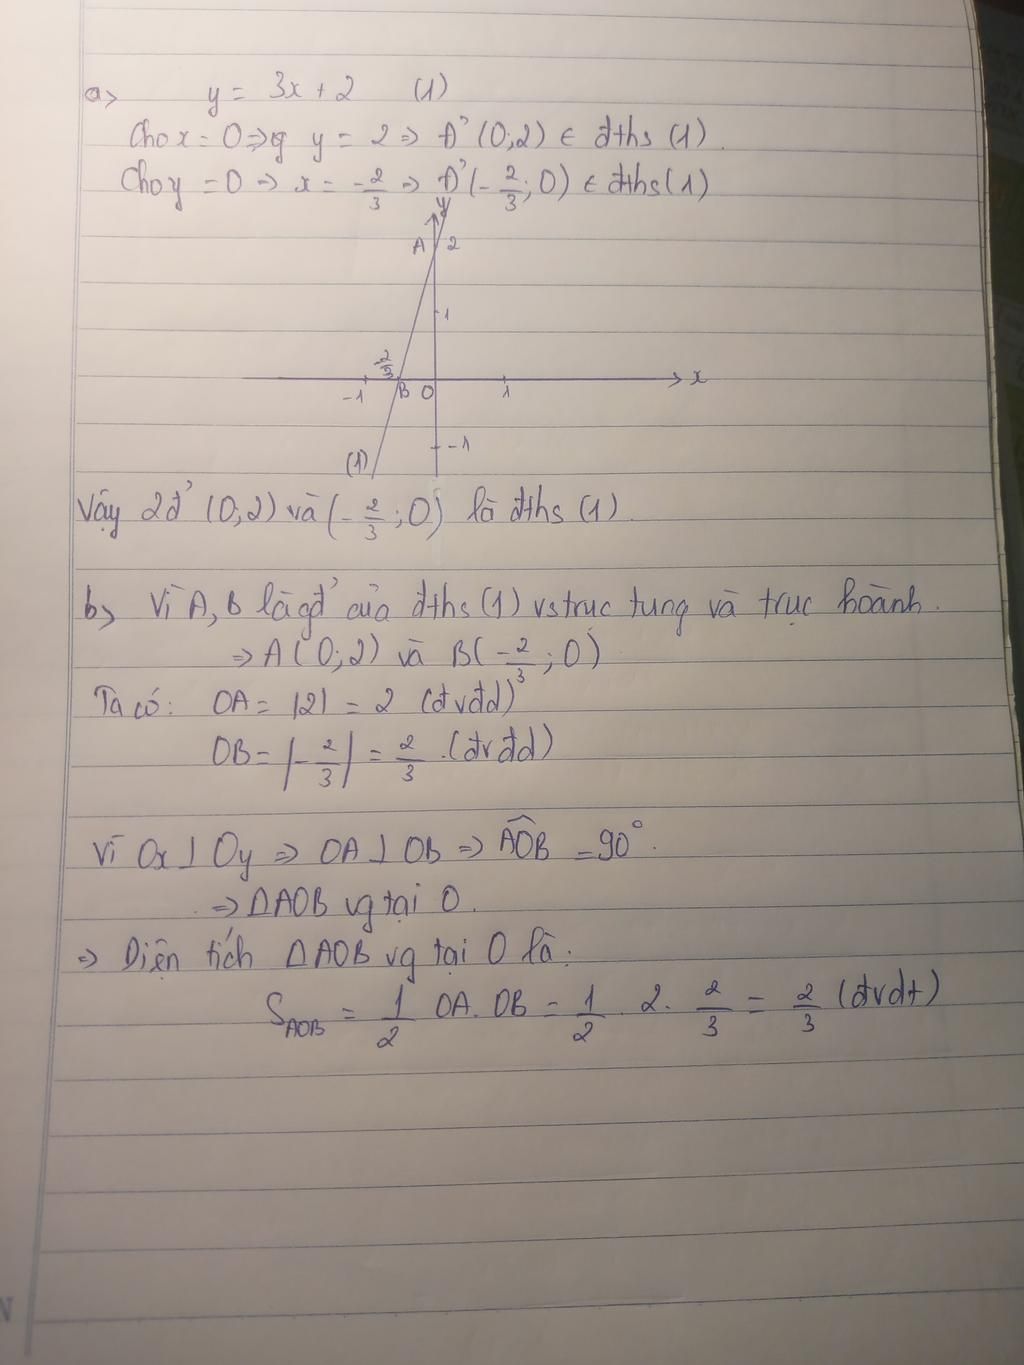 a> y = 3x + 2 (1)
Cho x = 0 => g y = 2 => Đ' (0;2) ∈ đths (1).
Cho y = 0 => x = -2/3 => Đ' (-2/3; 0) ∈ đths (1)
y
A 2
1
-2/3
x
-1 B O 1
-1
(1)
Vậy 2đ' (0;2) và (-2/3; 0) là đths (1).
b> Vì A, B là gđ' của đths (1) vs trục tung và trục hoành.
=> A (0; 2) và B(-2/3; 0)
Ta có: OA = |2| = 2 (đvđd)
OB = |-2/3| = 2/3 . (đvđd)
Vì Ox ⊥ Oy => OA ⊥ OB => AÔB = 90°.
=> ΔAOB vg tại O.
=> Diện tích ΔAOB vg tại O là:
S_AOB = 1/2 OA. OB = 1/2 . 2. 2/3 = 2/3 (đvdt)